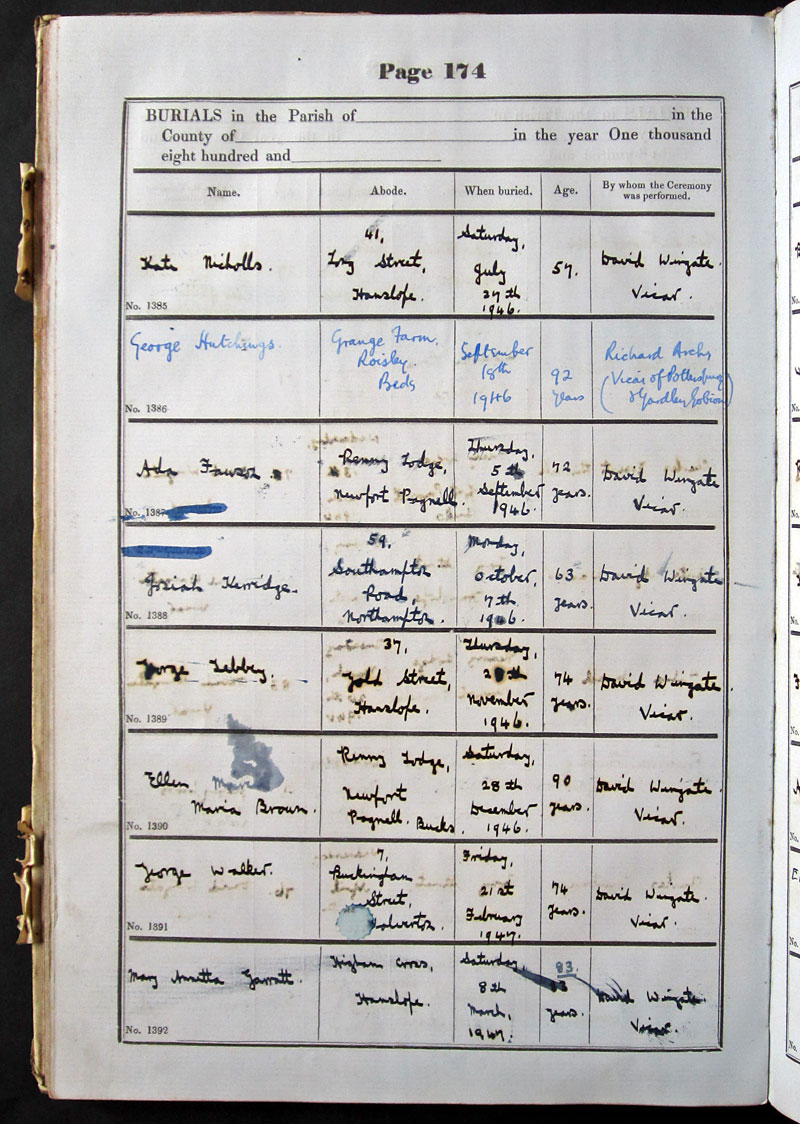 Page 174
BURIALS in the Parish of in the
County of in the year One thousand
eight hundred and
Name. Abode. When buried. Age. By whom the Ceremony
was performed.
Kate Nicholls.
41,
Long Street,
Hanslope.
Saturday,
July
27th
1946.
57.
David Wingate.
Vicar.
No. 1385
George Hutchings.
Grange Farm.
Roisley
Beds
September
18th
1946
92
years
Richard
(Vicar of Potterspury
& Yardley Gobion)
No. 1386
Ada
Renny Lodge,
Newfort Pagnell
Thursday,
5th
September
1946.
72
years.
David Wingate
Vicar.
No. 1387
Josiah Kerridge.
59,
Southampton
Road,
Northampton.
Monday,
October,
7th
1946.
63
years.
David Wingate
Vicar.
No. 1388
George Tebbey.
37,
Gold Street,
Hanslope.
Thursday,
November
1946.
74
years.
David Wingate.
Vicar.
No. 1389
Ellen
Maria Brown.
Renny Lodge,
Newfort
Pagnell. Bucks.
Saturday,
28th
December
1946.
90
years.
David Wingate.
Vicar.
No. 1390
George Walker.
7,
Buckingham
Street,
Wolverton.
Friday,
21st
February
1947.
74
years.
David Wingate
Vicar.
No. 1391
Mary Garratt.
Higham Cross,
Hanslope.
Saturday,
8th
March,
1947.
83.
years.
David Wingate.
Vicar.
No. 1392